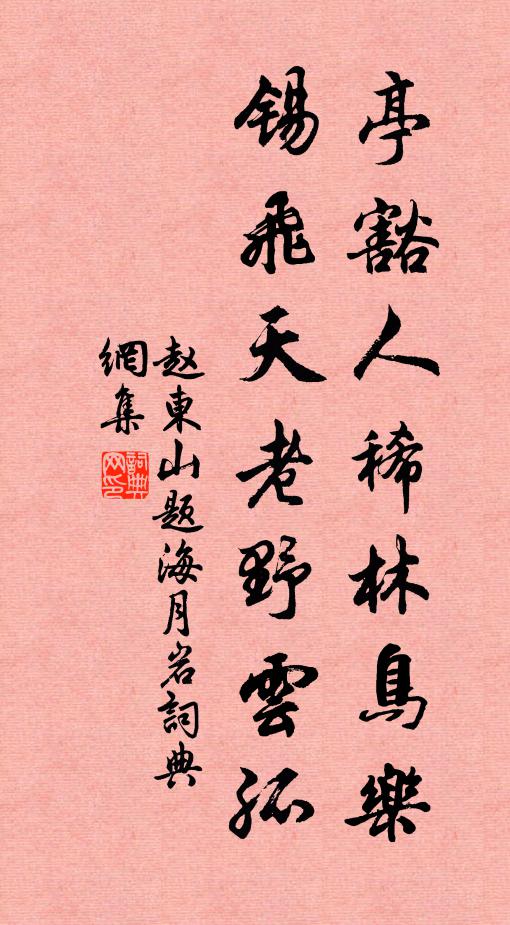 亭豁人稀林鳥樂
錫飛天老野雲孤
赵東山題海月岩詞典
網集
詞典网印